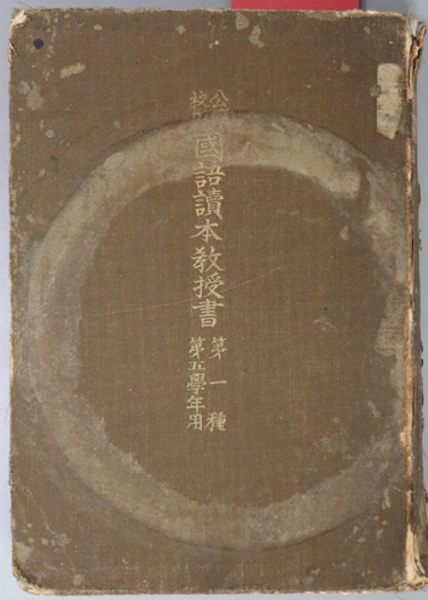 公
校
國語讀本教授書
第一種
第五學年用